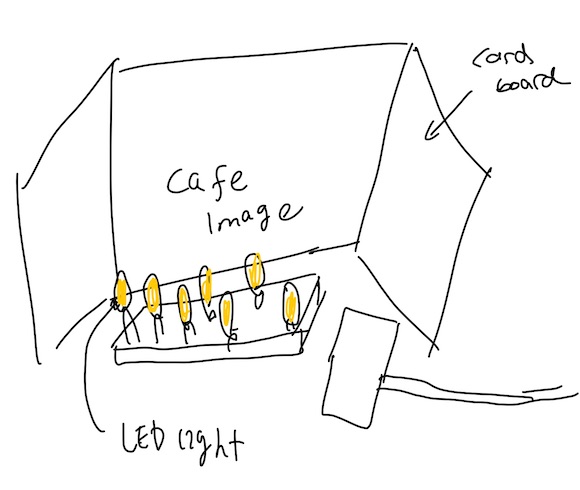 Card
board
Cafe
Image
LED light